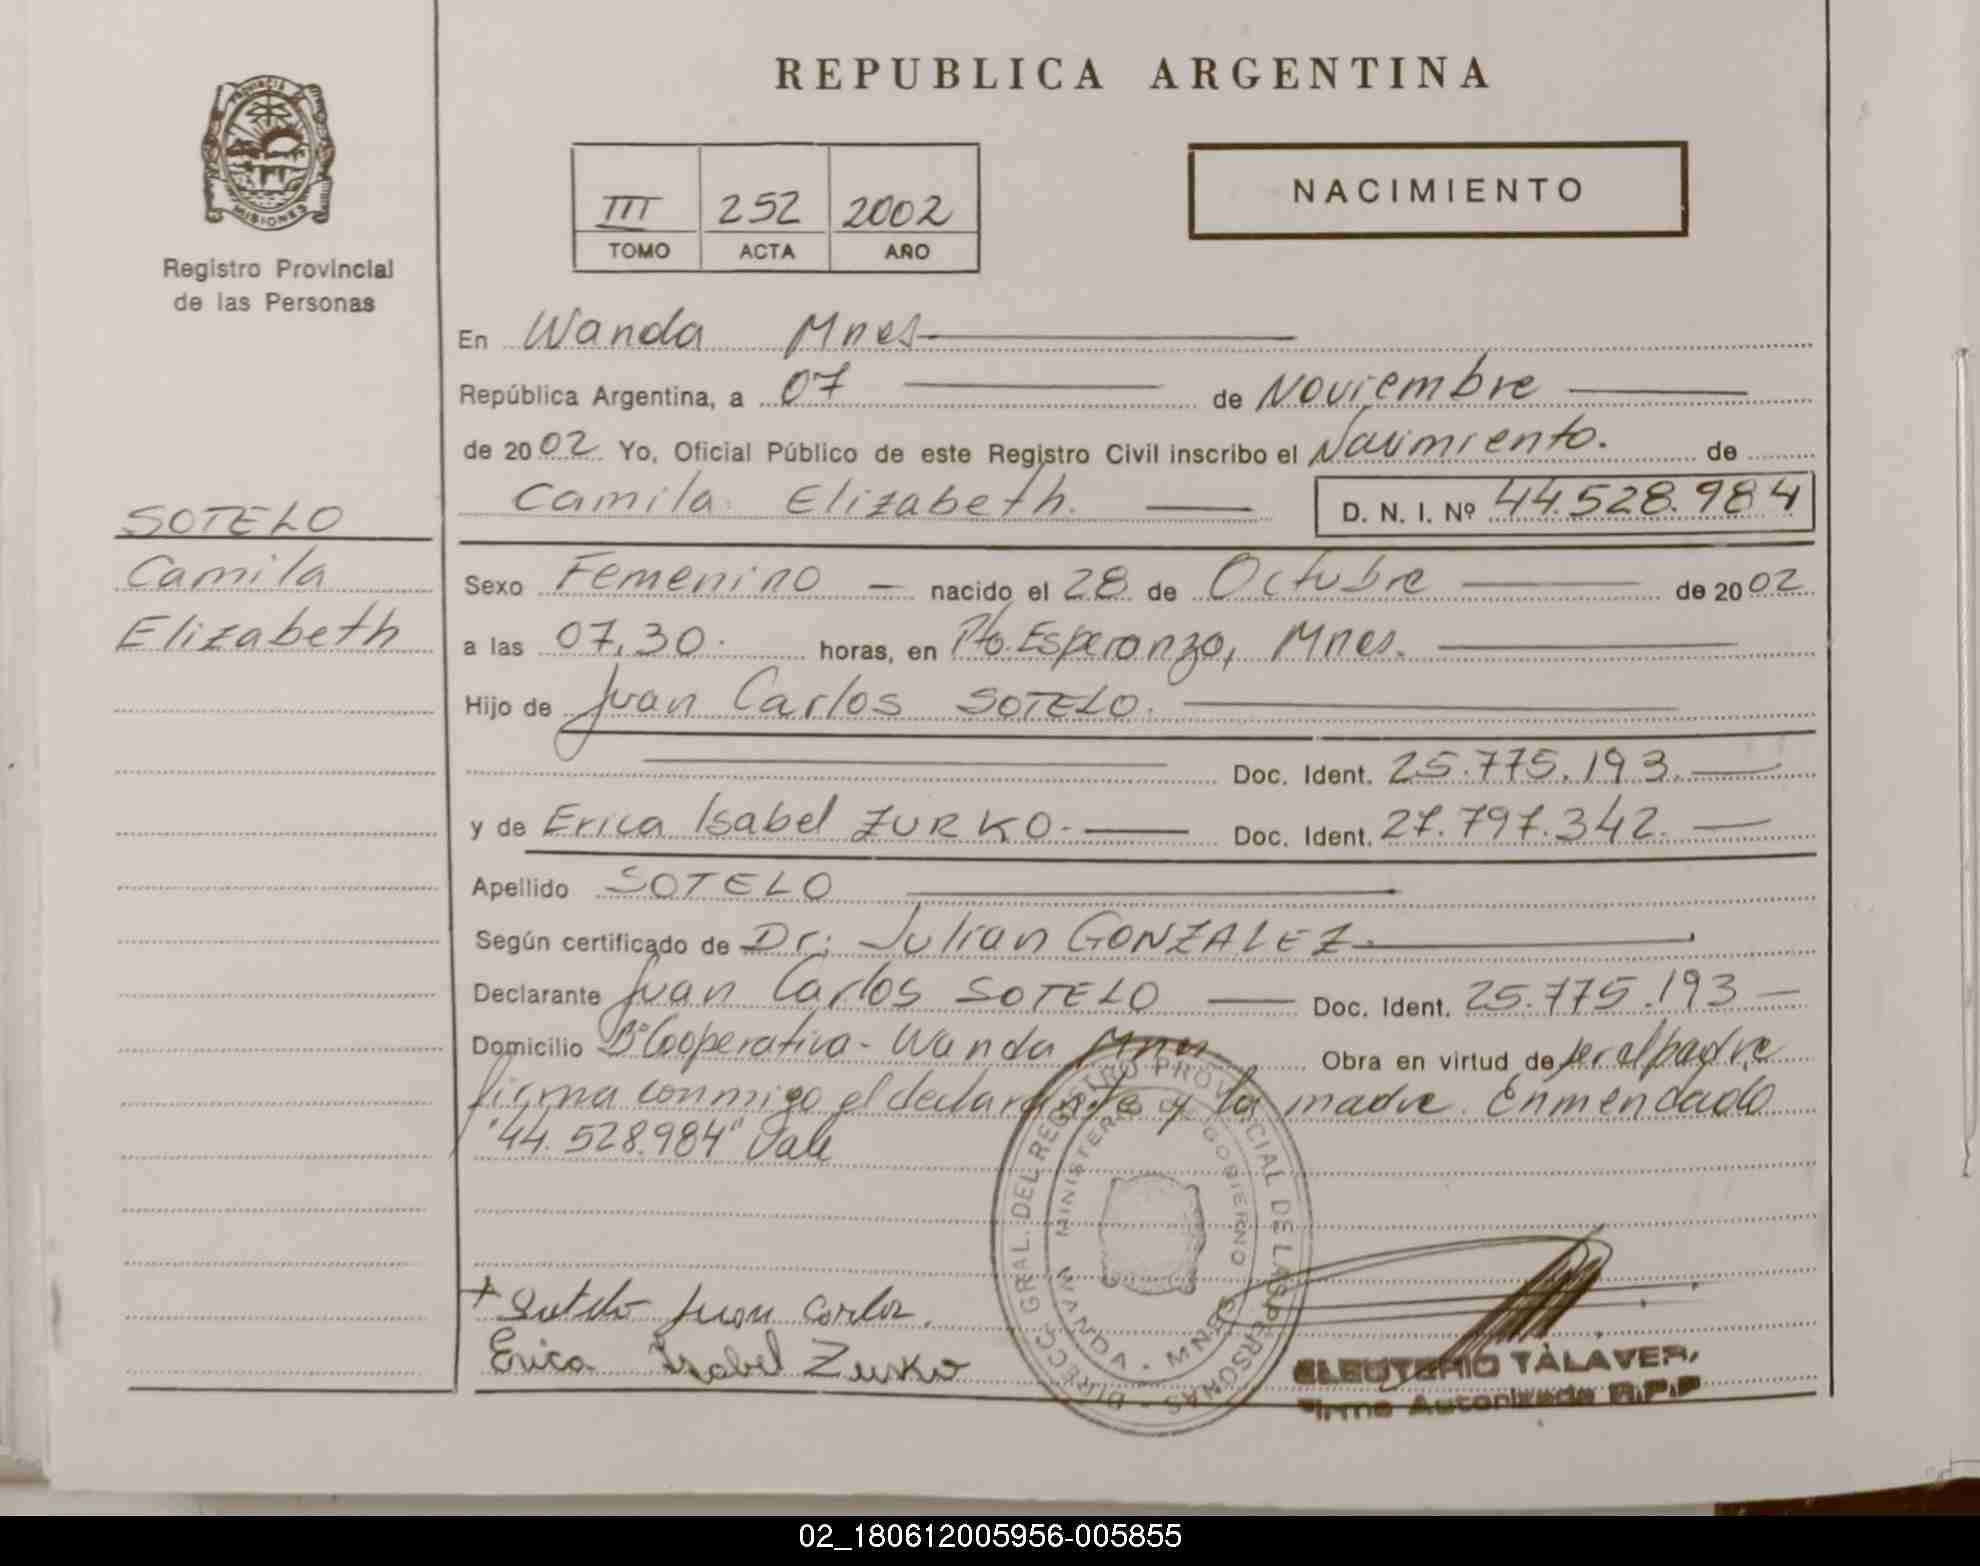 REPUBLICA ARGENTINA
PROVINCIA DE
MISIONES
Registro Provincial
de las Personas
III 252 2002
TOMO ACTA AÑO
NACIMIENTO
En Wanda Mnes
República Argentina, a 07 de Noviembre
de 2002 Yo, Oficial Público de este Registro Civil inscribo el Nacimiento. de
Camila Elizabeth. D. N. I. Nº 44.528.984
SOTELO
Camila
Elizabeth
Sexo Femenino nacido el 28 de Octubre de 2002
a las 07,30. horas, en Pto. Esperanza, Mnes.
Hijo de Juan Carlos SOTELO.
Doc. Ident. 25.775.193.
y de Erica Isabel ZURKO. Doc. Ident. 27.797.342.
Apellido SOTELO
Según certificado de Dr: Julian GONZALEZ.
Declarante Juan Carlos SOTELO Doc. Ident. 25.775.193
Domicilio Bº Cooperativa - Wanda Mnes Obra en virtud de ser el padre
firma conmigo el declarante y la madre. Enmendado
"44.528.984" Vale
DIRECC. GRAL. DEL REGISTRO PROVINCIAL DE LAS PERSONAS
MINISTERIO DE GOBIERNO
WANDA - MNES
+ Sotelo Juan Carlos.
Erica Isabel Zurko
ELEUTERIO TALAVER
Firma Autorizada R.P.P
02_180612005956-005855